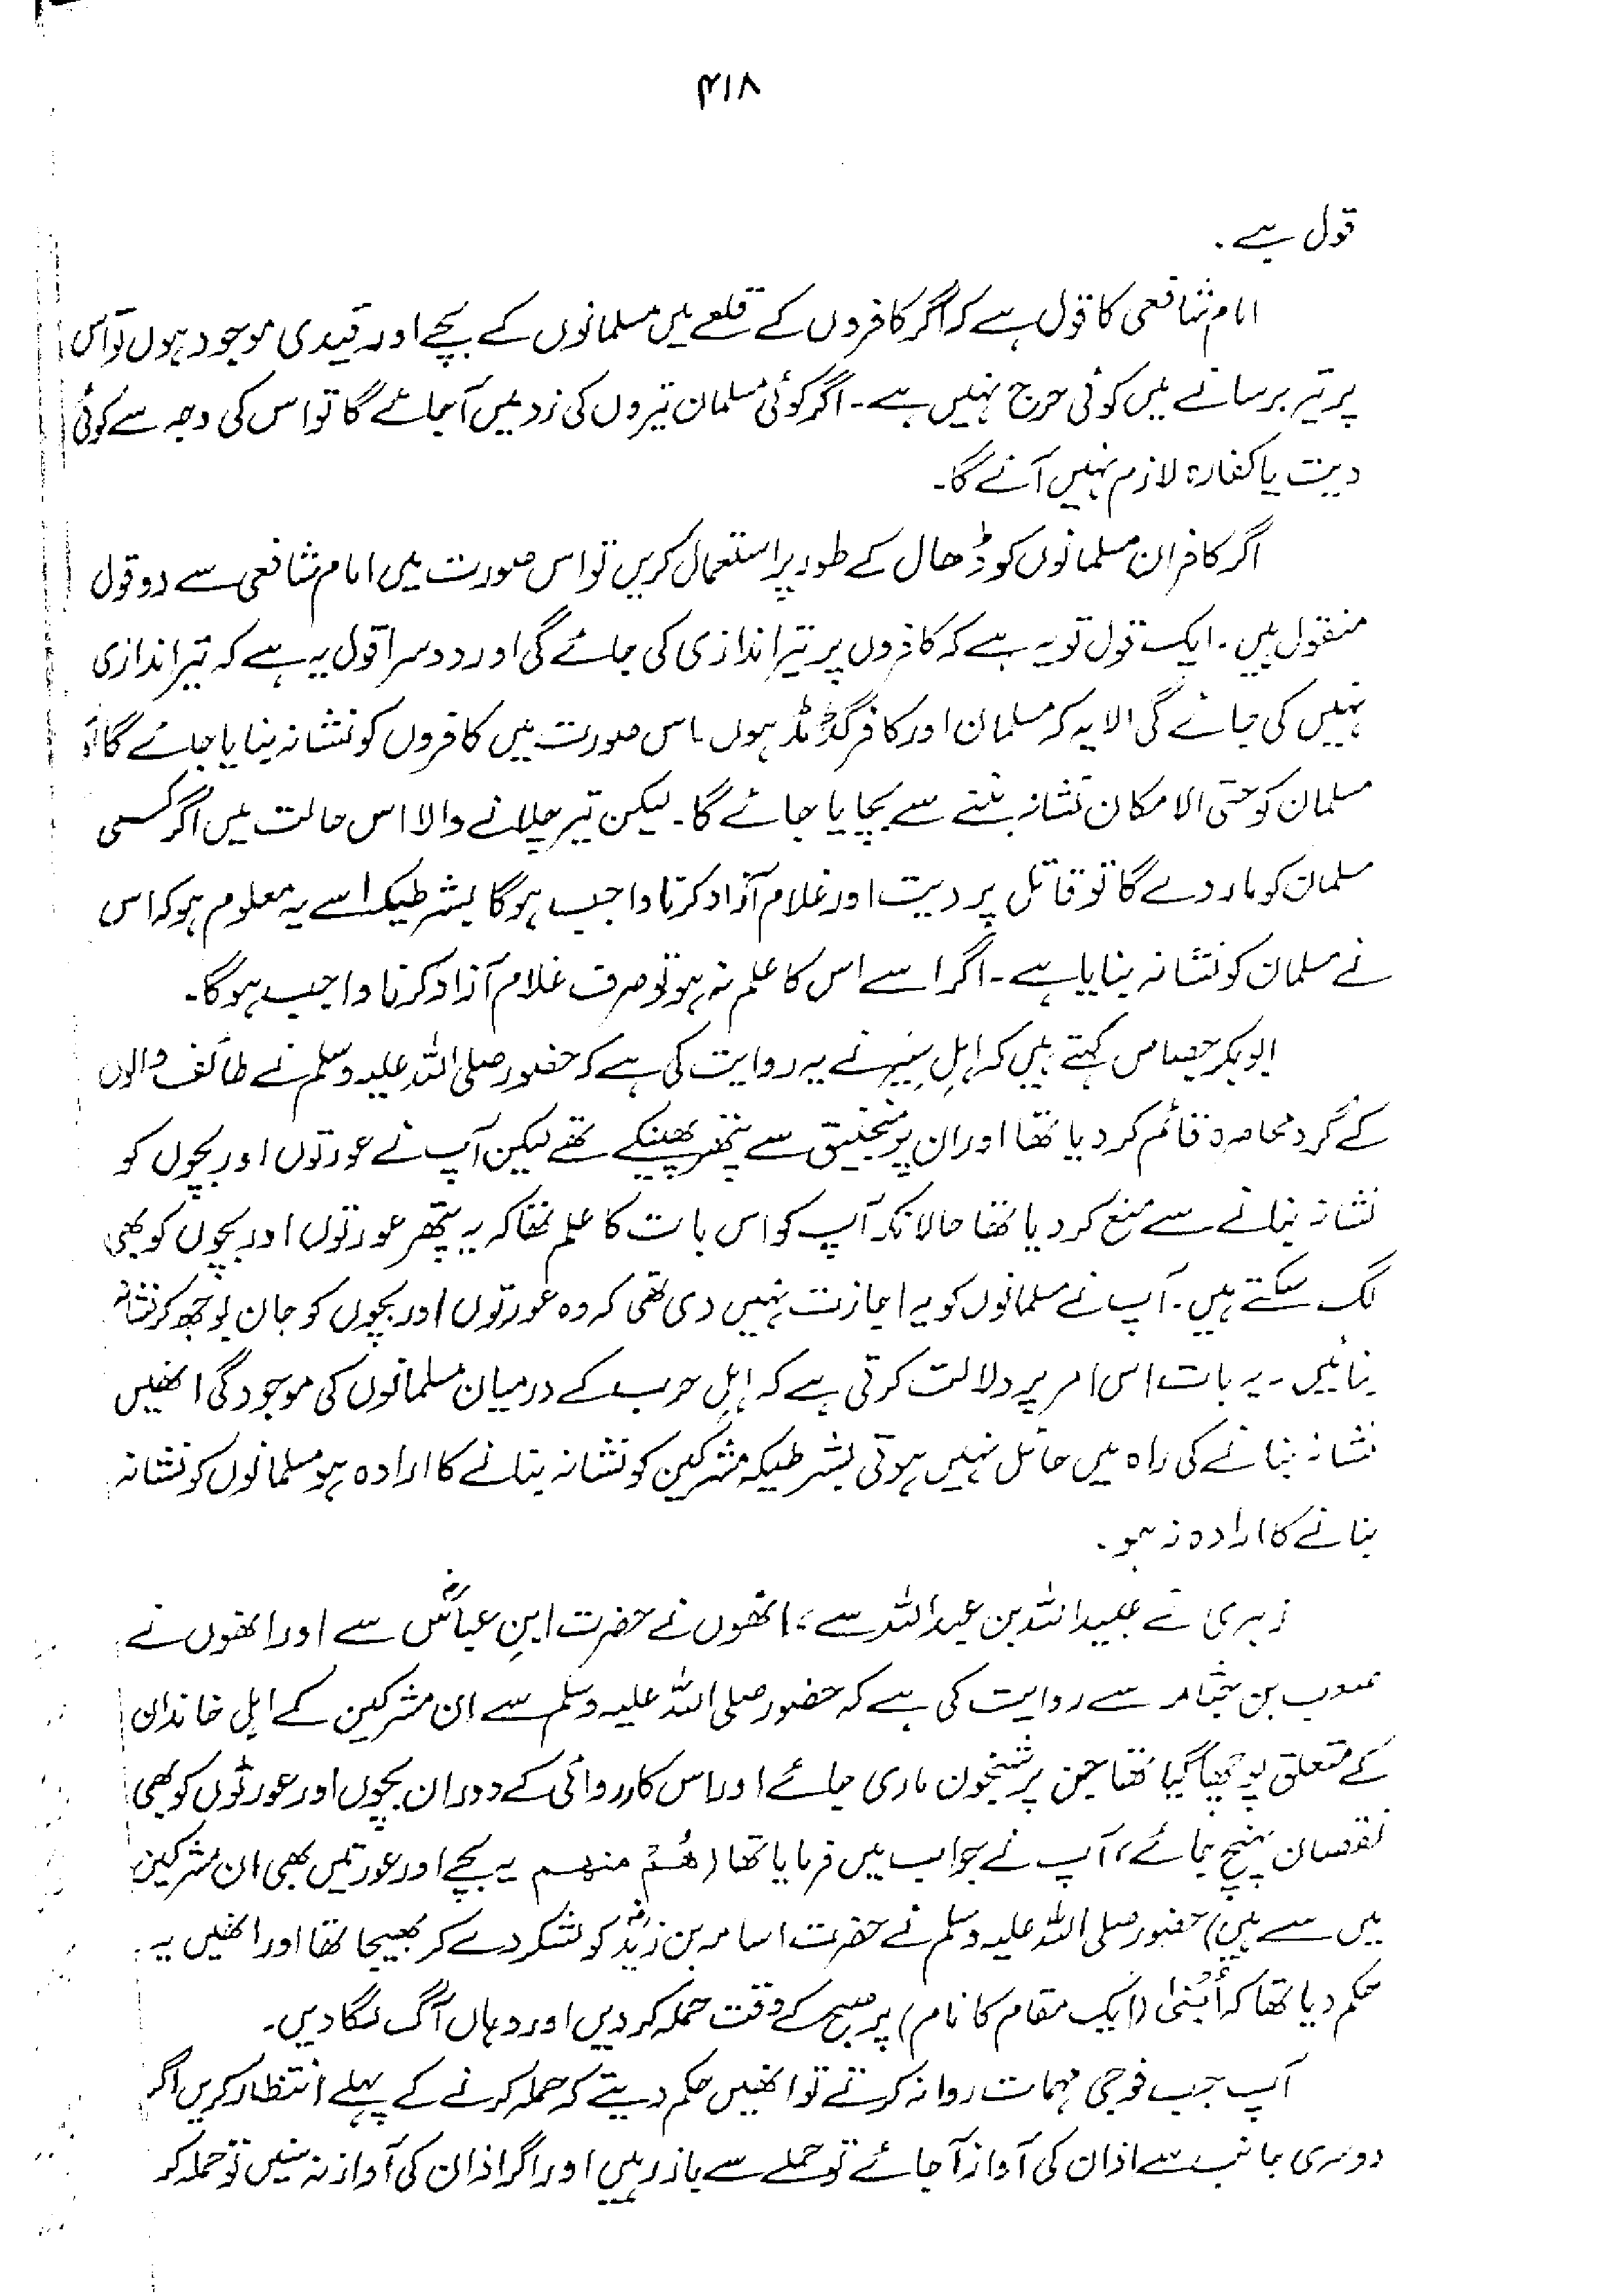 ۴۱۸
قول ہے۔
امام شافعی کا قول ہے کہ اگر کافروں کے قلعے میں مسلمانوں کے بچے اور قیدی موجود ہوں تو اس
پر تیر برسانے میں کوئی حرج نہیں ہے۔ اگر کوئی مسلمان تیروں کی زد میں آ جائے گا تو اس کی وجہ سے کوئی
دیت یا کفارہ لازم نہیں آئے گا۔
اگر کافر ان مسلمانوں کو ڈھال کے طور پر استعمال کریں تو اس صورت میں امام شافعی سے دو قول
منقول ہیں۔ ایک قول تو یہ ہے کہ کافروں پر تیر اندازی کی جائے گی اور دوسرا قول یہ ہے کہ تیر اندازی
نہیں کی جائے گی الا یہ کہ مسلمان اور کافر گڈمڈ ہوں۔ اس صورت میں کافروں کو نشانہ بنایا جائے گا
مسلمان کو حتی الامکان نشانہ بننے سے بچایا جائے گا۔ لیکن تیر چلانے والا اس حالت میں اگر کسی
مسلمان کو مار دے گا تو قاتل پر دیت اور غلام آزاد کرنا واجب ہوگا بشرطیکہ اسے یہ معلوم ہو کہ اس
نے مسلمان کو نشانہ بنایا ہے۔ اگر اسے اس کا علم نہ ہو تو صرف غلام آزاد کرنا واجب ہوگا۔
ابوبکر جصاص کہتے ہیں کہ اہلِ سِیَر نے یہ روایت کی ہے کہ حضور صلی اللہ علیہ وسلم نے طائف والوں
کے گرد محاصرہ قائم کر دیا تھا اور ان پر منجنیق سے پتھر پھینکے تھے لیکن آپ نے عورتوں اور بچوں کو
نشانہ بنانے سے منع کر دیا تھا حالانکہ آپ کو اس بات کا علم تھا کہ یہ پتھر عورتوں اور بچوں کو بھی
لگ سکتے ہیں۔ آپ نے مسلمانوں کو یہ اجازت نہیں دی تھی کہ وہ عورتوں اور بچوں کو جان بوجھ کر نشانہ
بنائیں۔ یہ بات اس امر پر دلالت کرتی ہے کہ اہلِ حرب کے درمیان مسلمانوں کی موجودگی انھیں
نشانہ بنانے کی راہ میں حائل نہیں ہوتی بشرطیکہ مشرکین کو نشانہ بنانے کا ارادہ ہو مسلمانوں کو نشانہ
بنانے کا ارادہ نہ ہو۔
زہری نے عبیداللہ بن عبداللہ سے، انھوں نے حضرت ابنِ عباسؓ سے اور انھوں نے
صعب بن جثامہ سے روایت کی ہے کہ حضور صلی اللہ علیہ وسلم سے ان مشرکین کے اہل خاندان
کے متعلق پوچھا گیا تھا جن پر شبخون ماری جائے اور اس کارروائی کے دوران بچوں اور عورتوں کو بھی
نقصان پہنچ جائے، آپ نے جواب میں فرمایا تھا (ھُمْ منھم یہ بچے اور عورتیں بھی ان مشرکین
میں سے ہیں) حضور صلی اللہ علیہ وسلم نے حضرت اسامہ بن زیدؓ کو لشکر دے کر بھیجا تھا اور انھیں یہ
حکم دیا تھا کہ اُبْنٰی (ایک مقام کا نام) پر صبح کے وقت حملہ کر دیں اور وہاں آگ لگا دیں۔
آپ جب فوجی مہمات روانہ کرتے تو انھیں حکم دیتے کہ حملہ کرنے کے پہلے انتظار کریں اگر
دوسری جانب سے اذان کی آواز آ جائے تو حملے سے باز رہیں اور اگر اذان کی آواز نہ سنیں تو حملہ کر